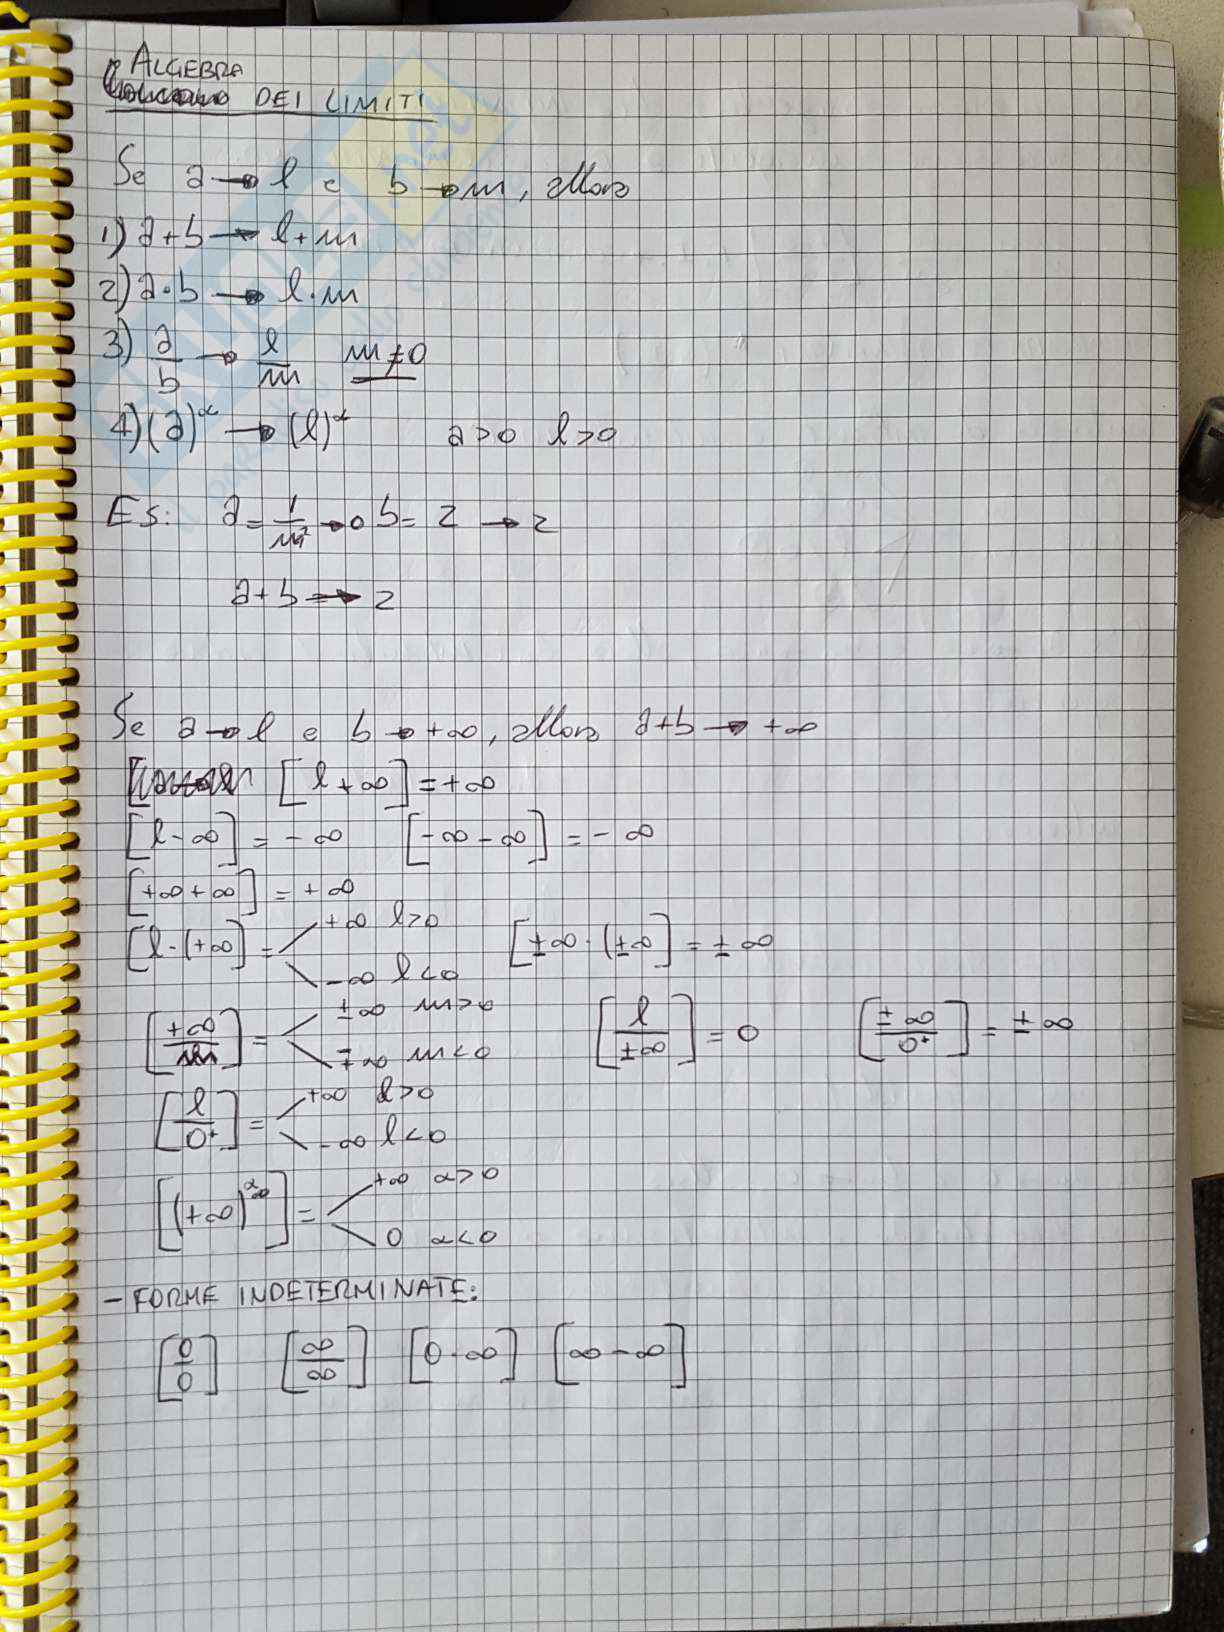 ALGEBRA
DEI LIMITI
Se a → l e b → m, allora
1) a+b → l+m
2) a·b → l·m
3) a/b → l/m m≠0
4) (a)^α → (l)^α a>0 l>0
Es: a = 1/n² → 0 b = 2 → 2
a+b → 2
Se a → l e b → +∞, allora a+b → +∞
[l+∞] = +∞
[l-∞] = -∞ [-∞-∞] = -∞
[+∞+∞] = +∞
[l·(+∞)] = +∞ l>0 -∞ l<0 [±∞·(±∞)] = ±∞
[±∞/m] = ±∞ m>0 ∓∞ m<0 [l/±∞] = 0 [±∞/0⁺] = ±∞
[l/0⁺] = +∞ l>0 -∞ l<0
[(+∞)^α] = +∞ α>0 0 α<0
- FORME INDETERMINATE:
[0/0] [∞/∞] [0·∞] [∞-∞]